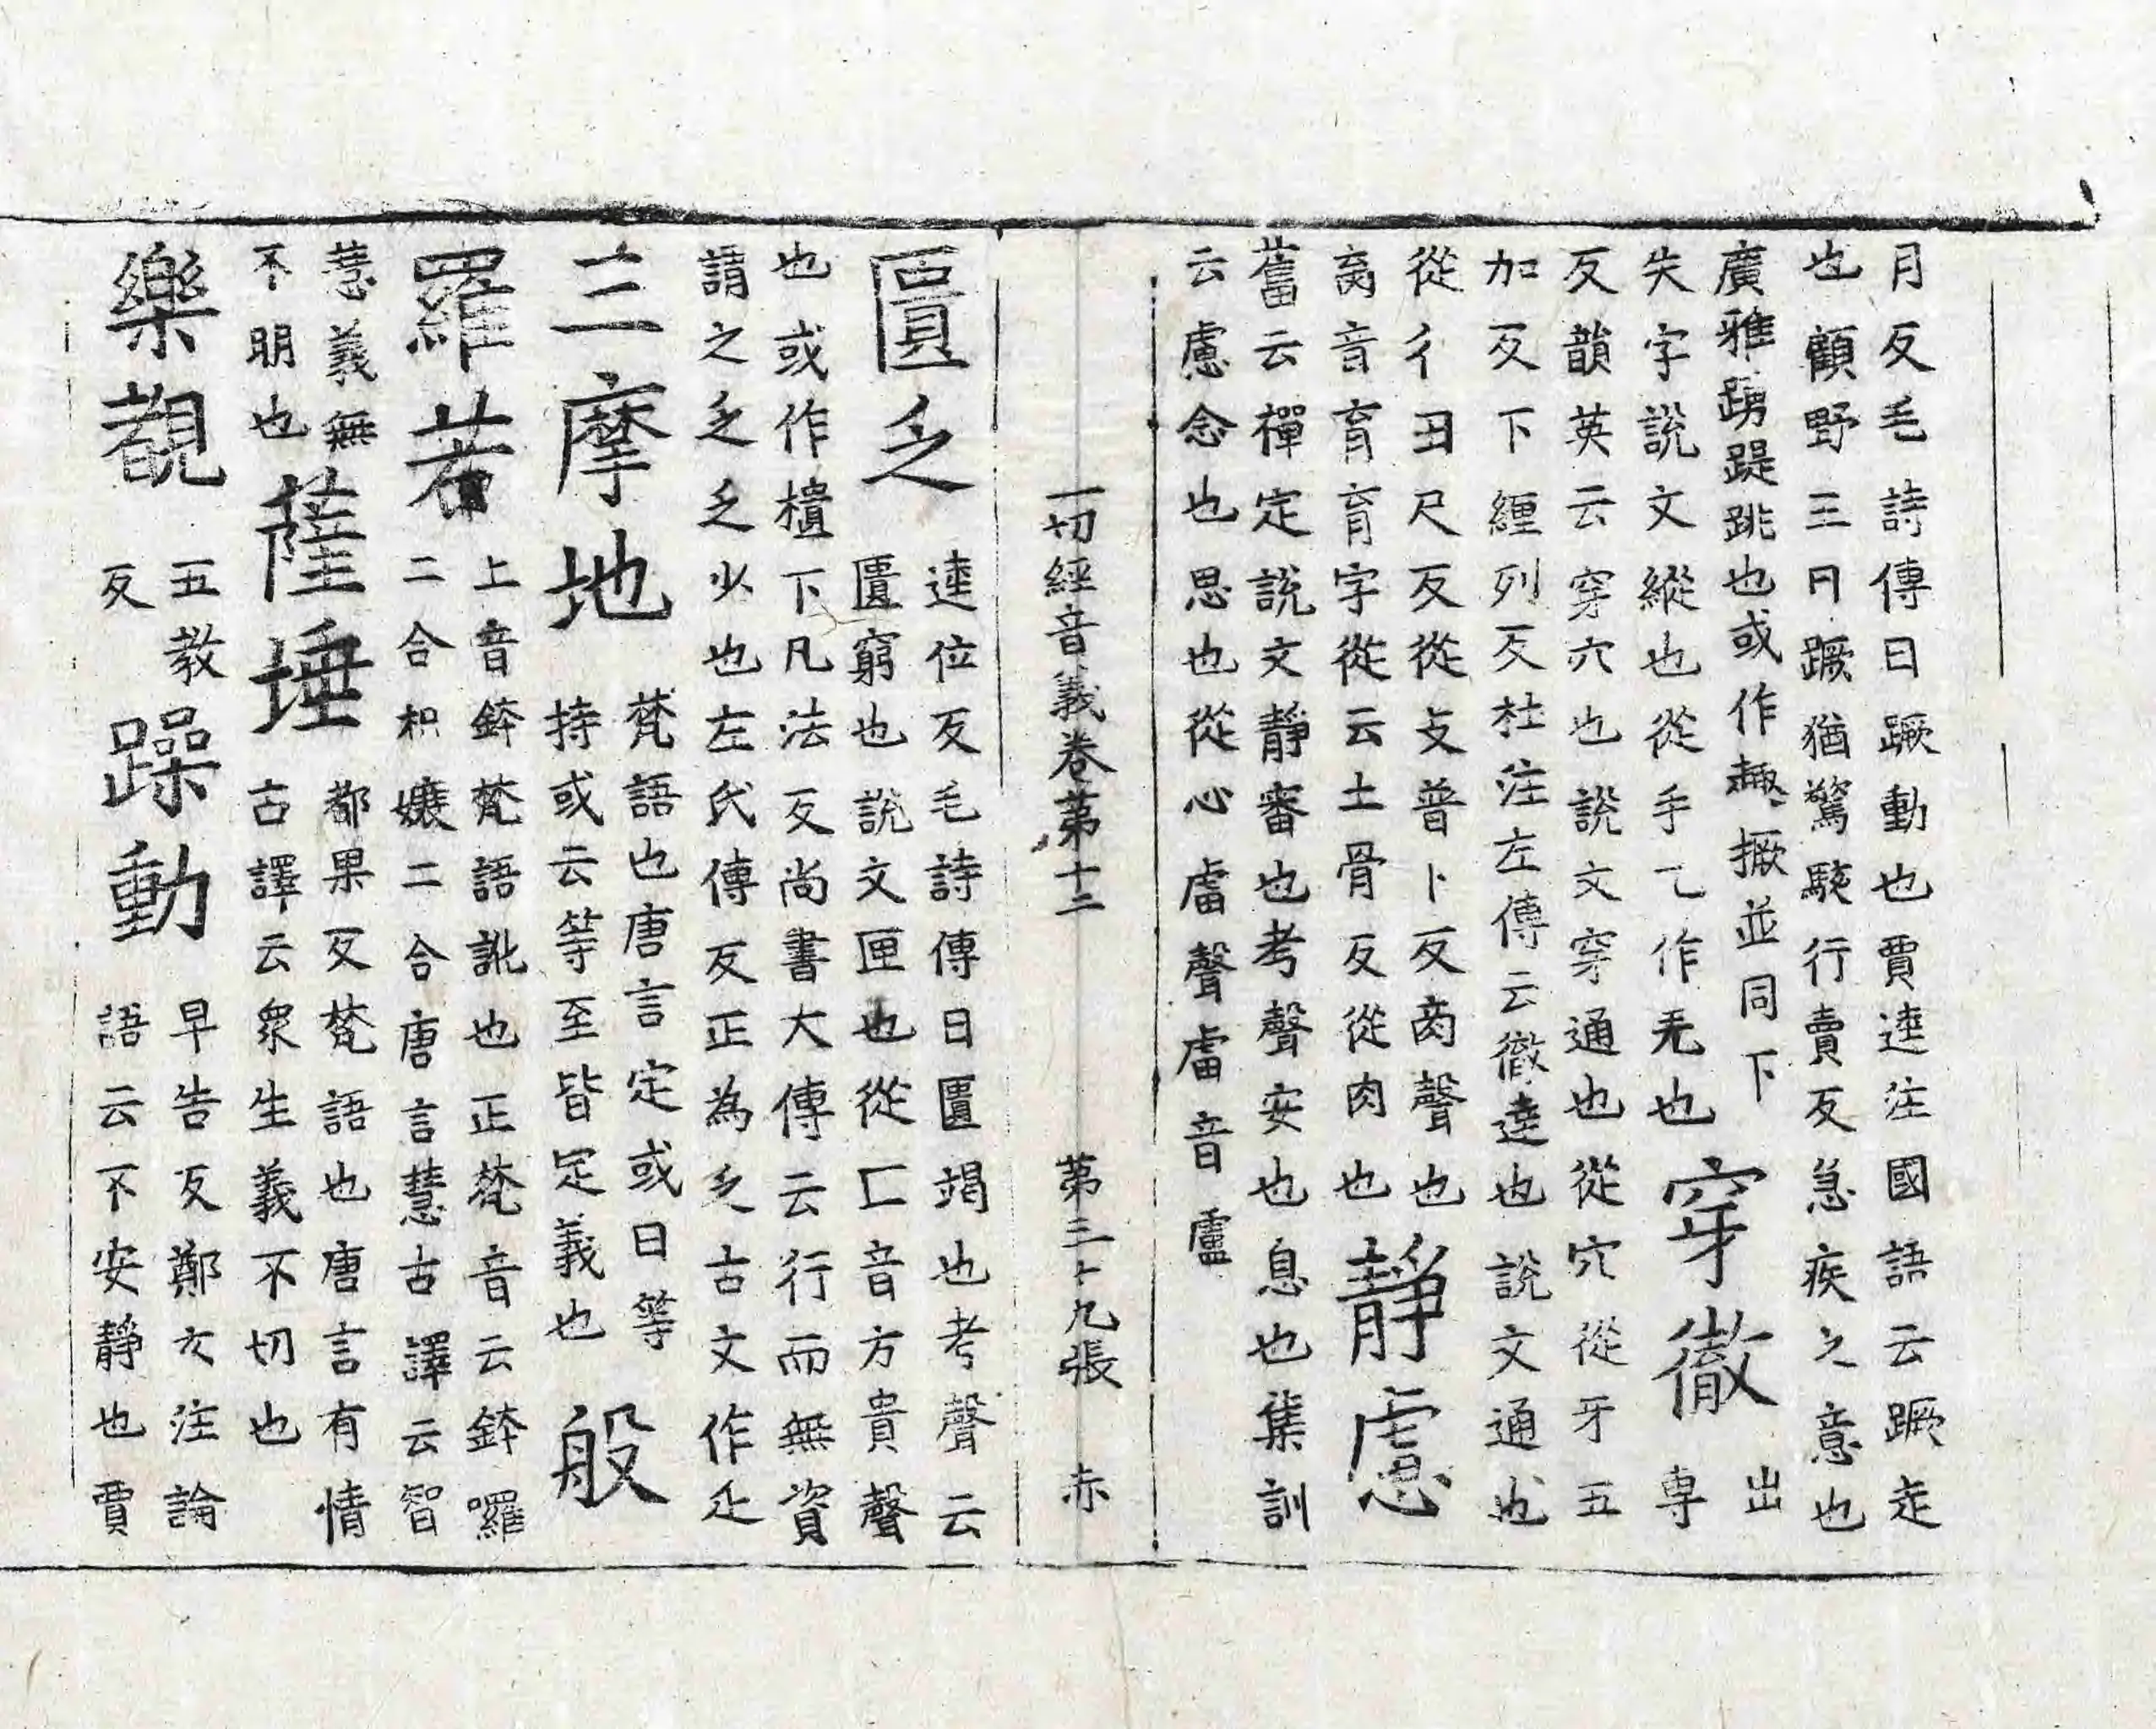 月反毛詩傳曰蹶動也賈逵注國語云蹶走
也顧野王曰蹶猶驚駭行賣反急疾之意也
廣雅踴踶跳也或作趣撅並同下
失字說文縱也從手乙作旡也穿徹出專
反韻英云穿穴也說文穿通也從穴從牙五
加反下纏列反杜注左傳云徹達也說文通也
從彳丑尺反從攴普卜反𦚧聲也
𦚧音育育字從云土骨反從肉也靜慮
舊云禪定說文靜審也考聲安也息也集訓
云慮念也思也從心虘聲虘音盧
一切經音義卷第十二 第三十九張 赤
匱乏逵位反毛詩傳曰匱竭也考聲云
匱窮也說文匣也從匚音方貴聲
也或作櫃下凡法反尚書大傳云行而無資
謂之乏乏少也左氏傳反正為乏古文作𠓟
三摩地梵語也唐言定或曰等
持或云等至皆定義也般
羅若上音鉢梵語訛也正梵音云鉢囉
二合枳孃二合唐言慧古譯云智
慧義無
不明也薩埵都果反梵語也唐言有情
古譯云衆生義不切也
樂覩五教反躁動早告反鄭玄注論
語云不安靜也賈